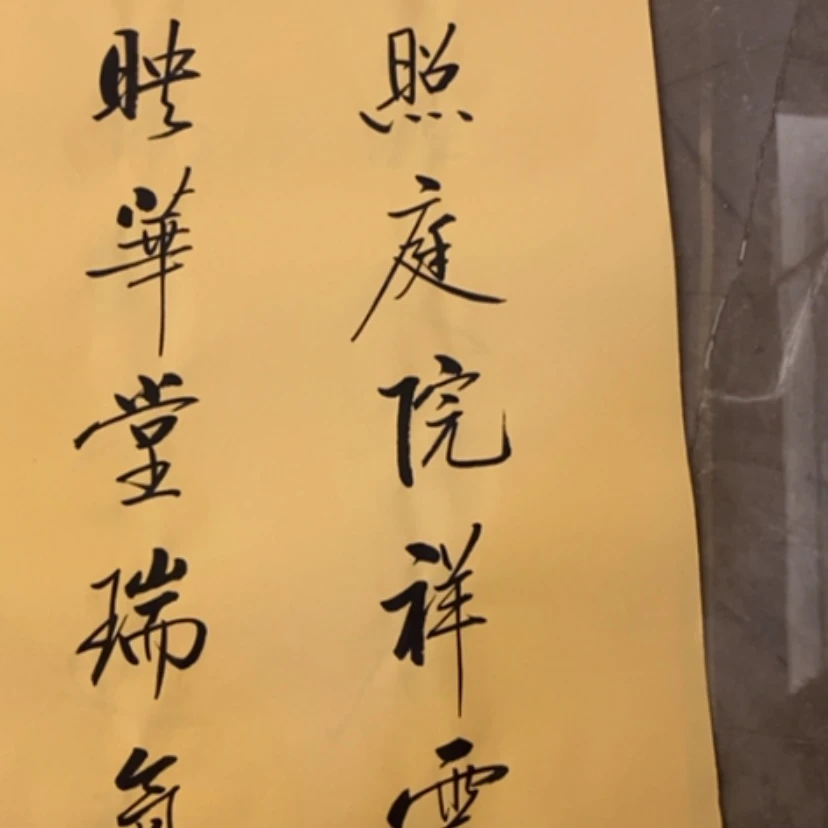 照庭院祥雲
映華堂瑞氣